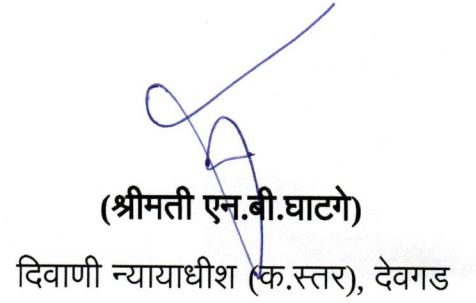 (श्रीमती एन.बी.घाटगे)
दिवाणी न्यायाधीश (क.स्तर), देवगड